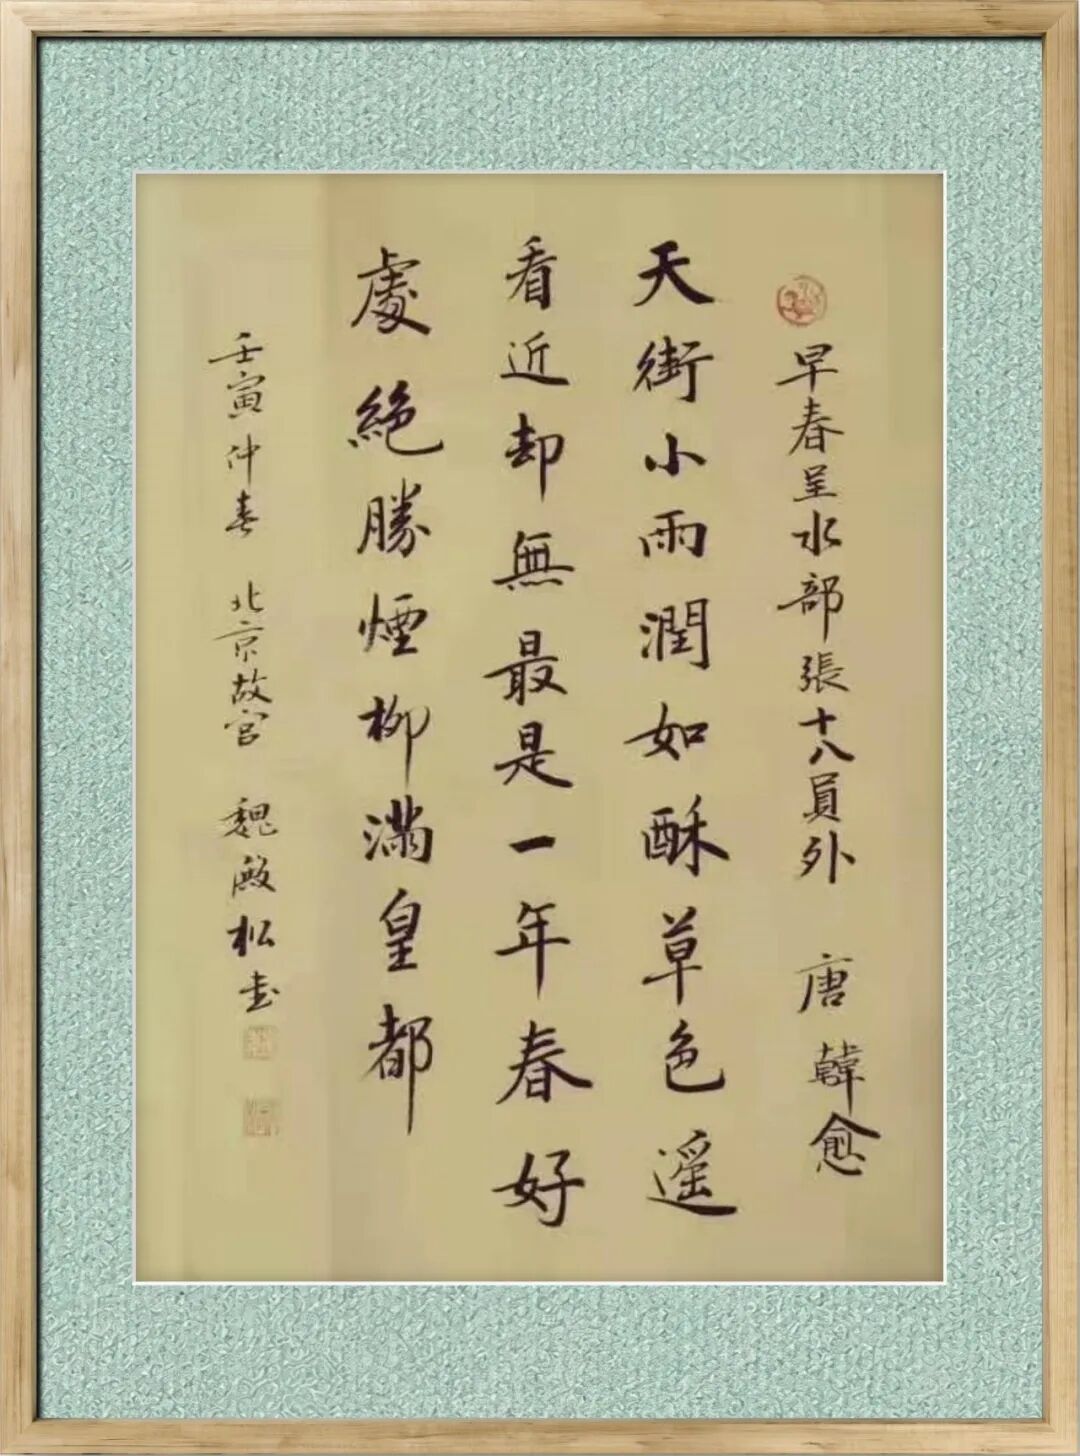 早春呈水部張十八員外 唐 韓愈
天街小雨潤如酥草色遥
看近却無最是一年春好
處絕勝煙柳滿皇都
壬寅仲春 北京故宮 魏殿松書